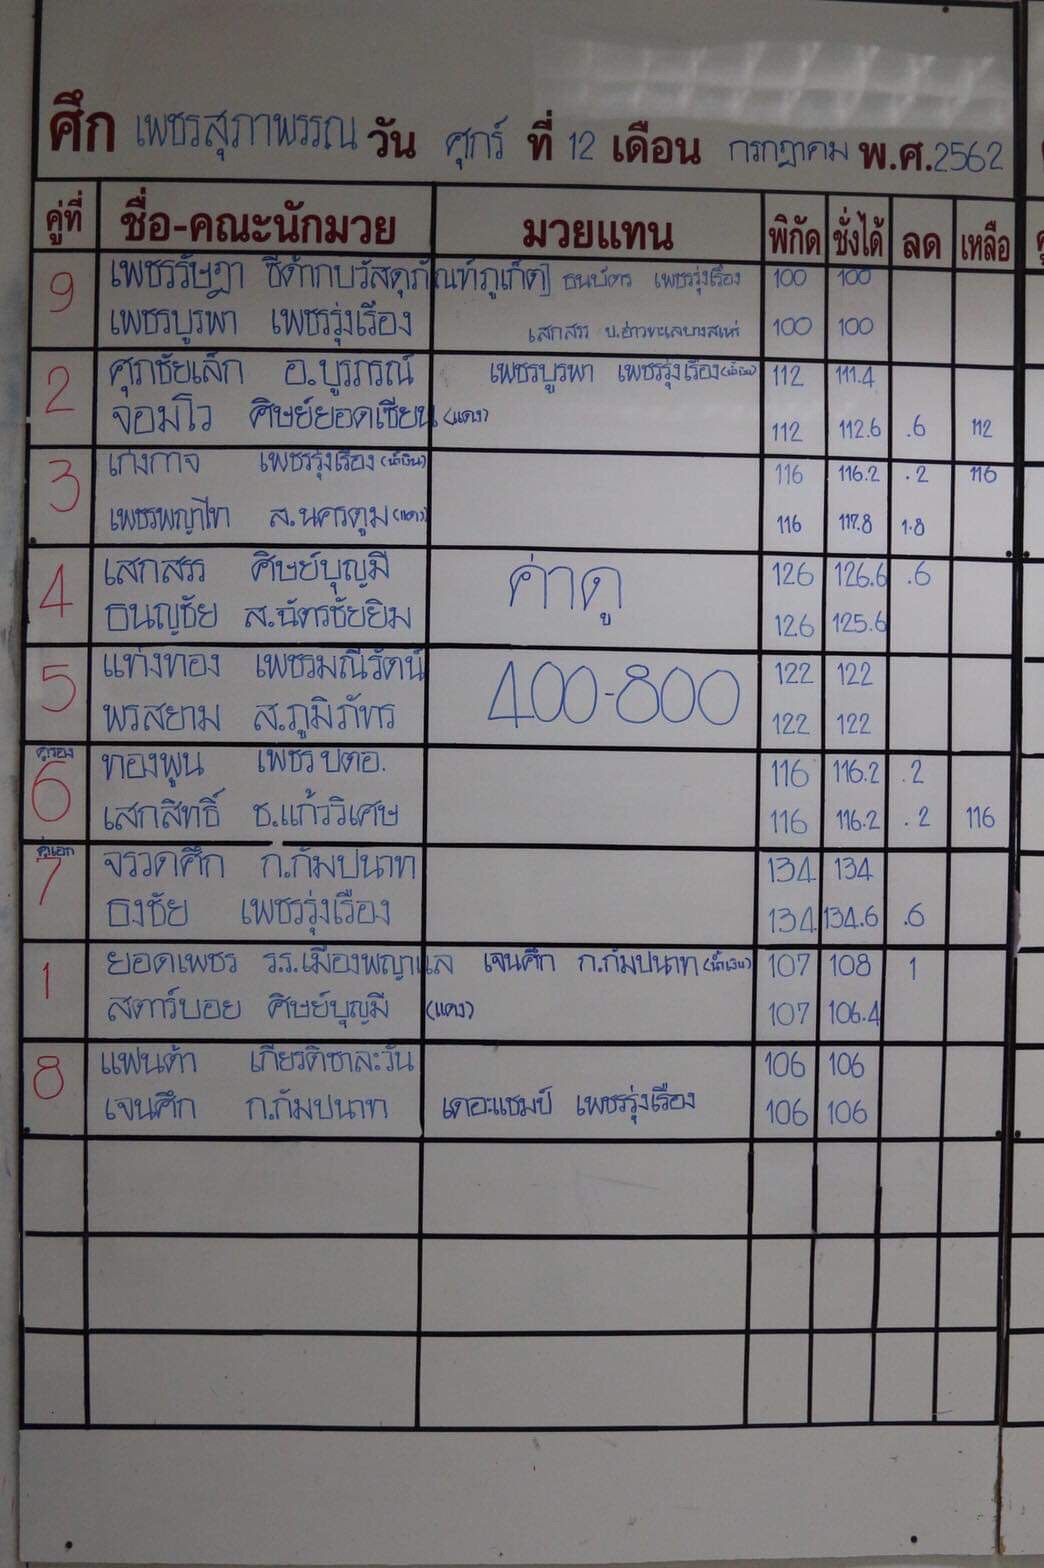 ศึก เพชรสุภาพรรณ วัน ศุกร์ ที่ 12 เดือน กรกฎาคม พ.ศ.2562
คู่ที่ ชื่อ-คณะนักมวย มวยแทน พิกัด ชั่งได้ ลด เหลือ
9 เพชรรัษฎา ซีต้ากบวัสดุภัณฑ์ภูเก็ต ธนบัตร เพชรรุ่งเรือง 100 100
เพชรบูรพา เพชรรุ่งเรือง เสกสรร 100 100
2 ศุภชัยเล็ก อ.บูรภรณ์ เพชรบูรพา เพชรรุ่งเรือง(น้ำเงิน) 112 111.4
จอมโว ศิษย์ยอดเซียน (แดง) 112 112.6 .6 112
3 เก่งกาจ เพชรรุ่งเรือง(น้ำเงิน) 116 116.2 .2 116
เพชรพญาไท ส.นครตูม(แดง) 116 117.8 1.8
4 เสกสรร ศิษย์บุญมี ค่าดู 126 126.6 .6
ธนญชัย ส.ฉัตรชัยยิม 126 125.6
5 แท่งทอง เพชรมณีรัตน์ 400-800 122 122
พรสยาม ส.ภูมิภัทร 122 122
คู่รอง
6 ทองพูน เพชร ปตอ. 116 116.2 .2
เสกสิทธิ์ ช.แก้ววิเศษ 116 116.2 .2 116
คู่เอก
7 จรวดศึก ก.กัมปนาท 134 134
ธงชัย เพชรรุ่งเรือง 134 134.6 .6
1 ยอดเพชร ร.ร.เมืองพญาแล เจนศึก ก.กัมปนาท(น้ำเงิน) 107 108 1
สตาร์บอย ศิษย์บุญมี (แดง) 107 106.4
8 แฟนต้า เกียรติชาละวัน 106 106
เจนศึก ก.กัมปนาท เดอะแชมป์ เพชรรุ่งเรือง 106 106